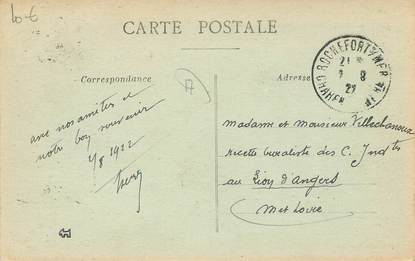 10€
CARTE POSTALE
Correspondance
Adresse
ROCHEFORT S MER
21
2 8
22
avec nos amitiés et
notre bon souvenir
2/8 1922
Madame et Monsieur Villechanoux
recette buraliste des C. Indtes
au Lion d'Angers
M et Loire